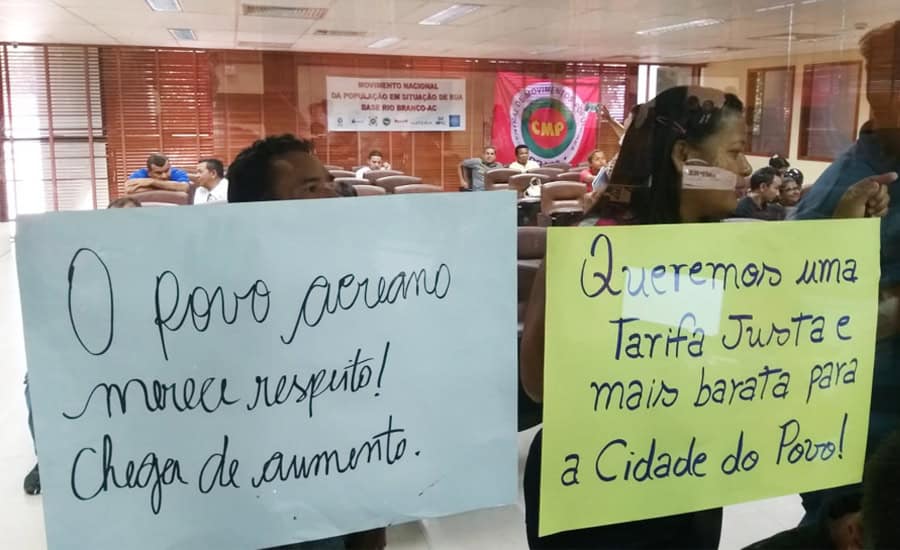 MOVIMENTO NACIONAL
DA POPULAÇÃO EM SITUAÇÃO DE RUA
BASE RIO BRANCO-AC
CMP
O povo acreano
merece respeito!
Chega de aumento.
Queremos uma
Tarifa Justa e
mais barata para
a Cidade do Povo!